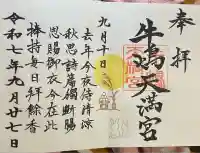 奉拝
牛嶋天満宮
九月十日
去年今夜侍清涼
秋思詩篇獨断腸
恩賜御衣今在此
捧持毎日拝餘香
令和七年九月廿七日